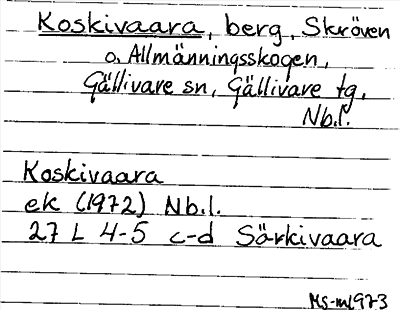 Koskivaara, berg, Skröven
o. Allmänningsskogen,
Gällivare sn, Gällivare tg,
Nb.l.
Koskivaara
ek (1972) Nb.l.
27 L 4-5 c-d Särkivaara
Ms-m1973